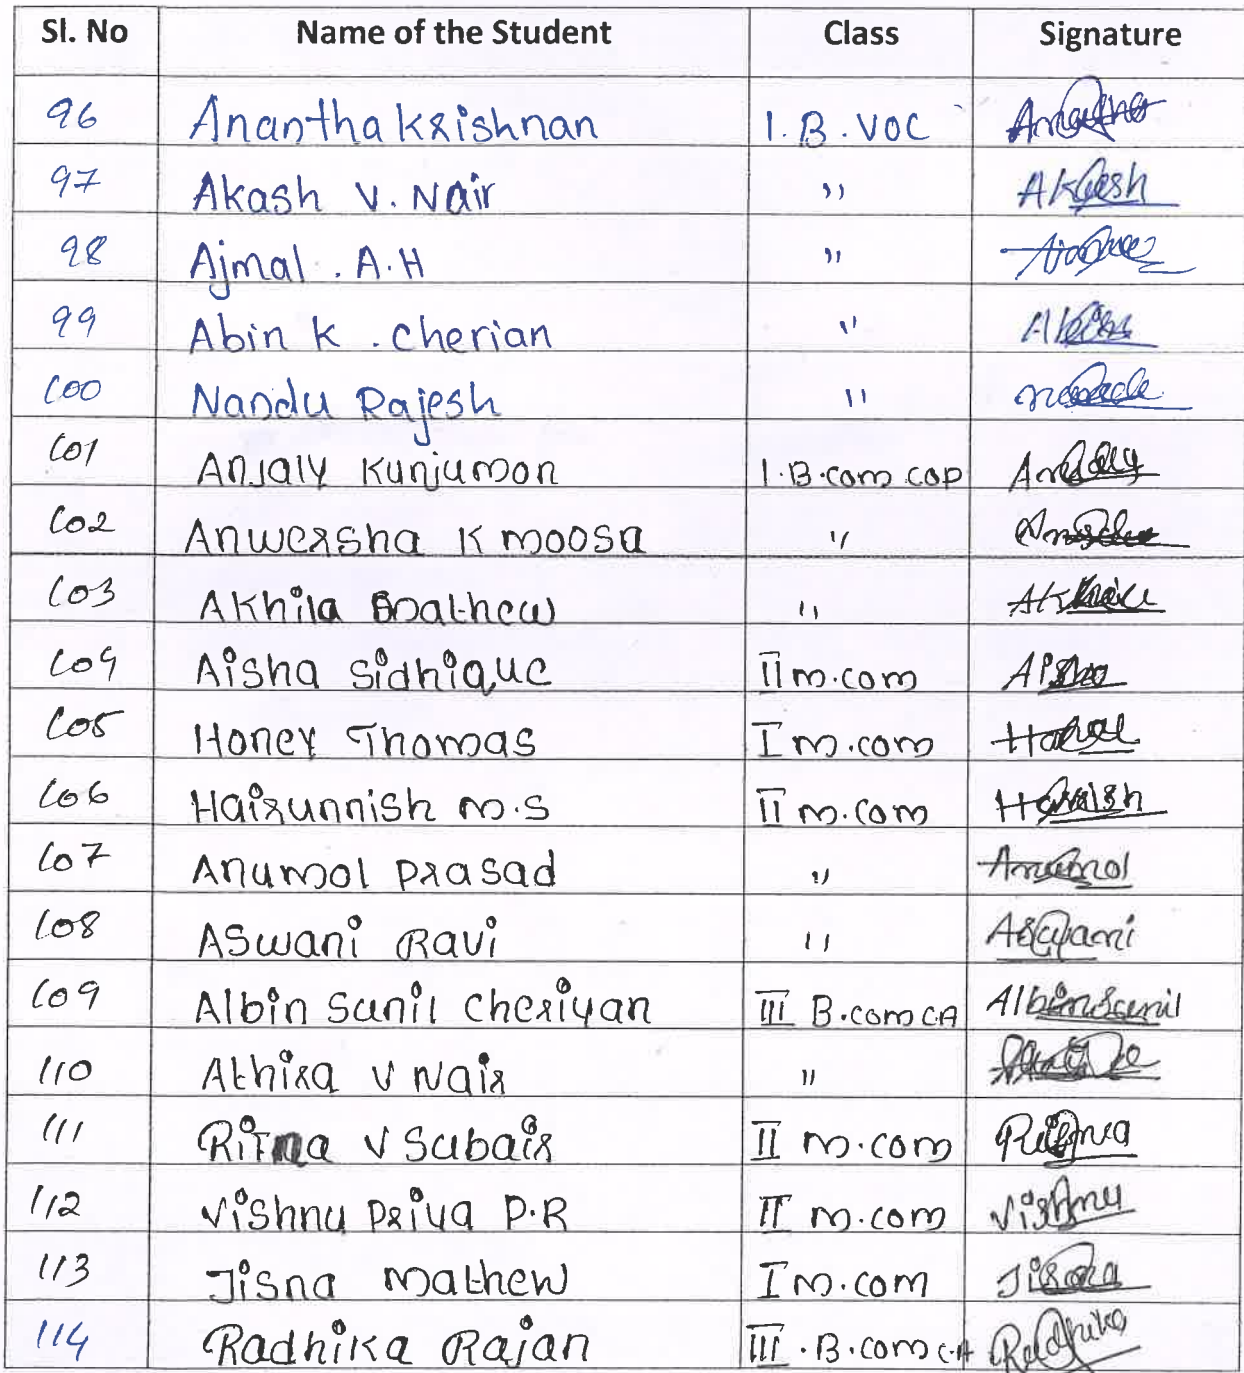 Sl. No Name of the Student Class Signature
96 Anantha Krishnan I. B. VOC
97 Akash V. Nair " Akash
98 Ajmal . A. H "
99 Abin K . Cherian "
100 Nandu Rajesh "
101 Anjaly Kunjumon I. B.com cop
102 Anwersha K moosa "
103 Akhila Mathew " Akhila
104 Aisha Sidhique II m.com Aisha
105 Honey Thomas I m.com
106 Hairunnish m.s II m.com
107 Anumol Prasad " Anumol
108 Aswani Ravi " Aswani
109 Albin Sunil Cheriyan III B.com CA Albin Sunil
110 Athira V Nair "
111 V Subair II m.com
112 Vishnu Priya P.R II m.com Vishnu
113 Jisna Mathew I m.com Jisna
114 Radhika Rajan III . B.com CA Radhika